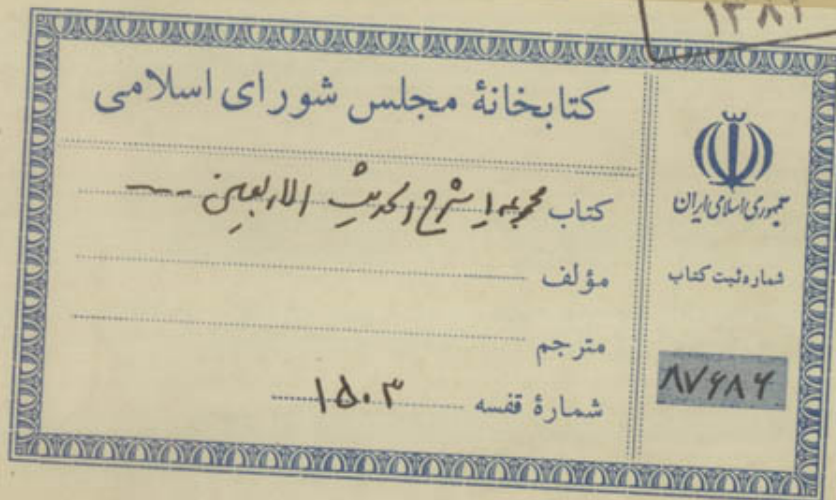 ۱۳۸۲
کتابخانهٔ مجلس شورای اسلامی
کتاب مجموعه شرح الحدیث الاربعین
مؤلف
مترجم
شمارهٔ قفسه ۱۵۰۳
جمهوری اسلامی ایران
شماره ثبت کتاب
۸۷۶۸۶